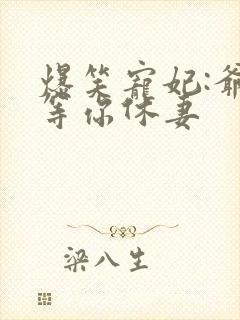 爆笑寵妃:爺
等你休妻
梁八生